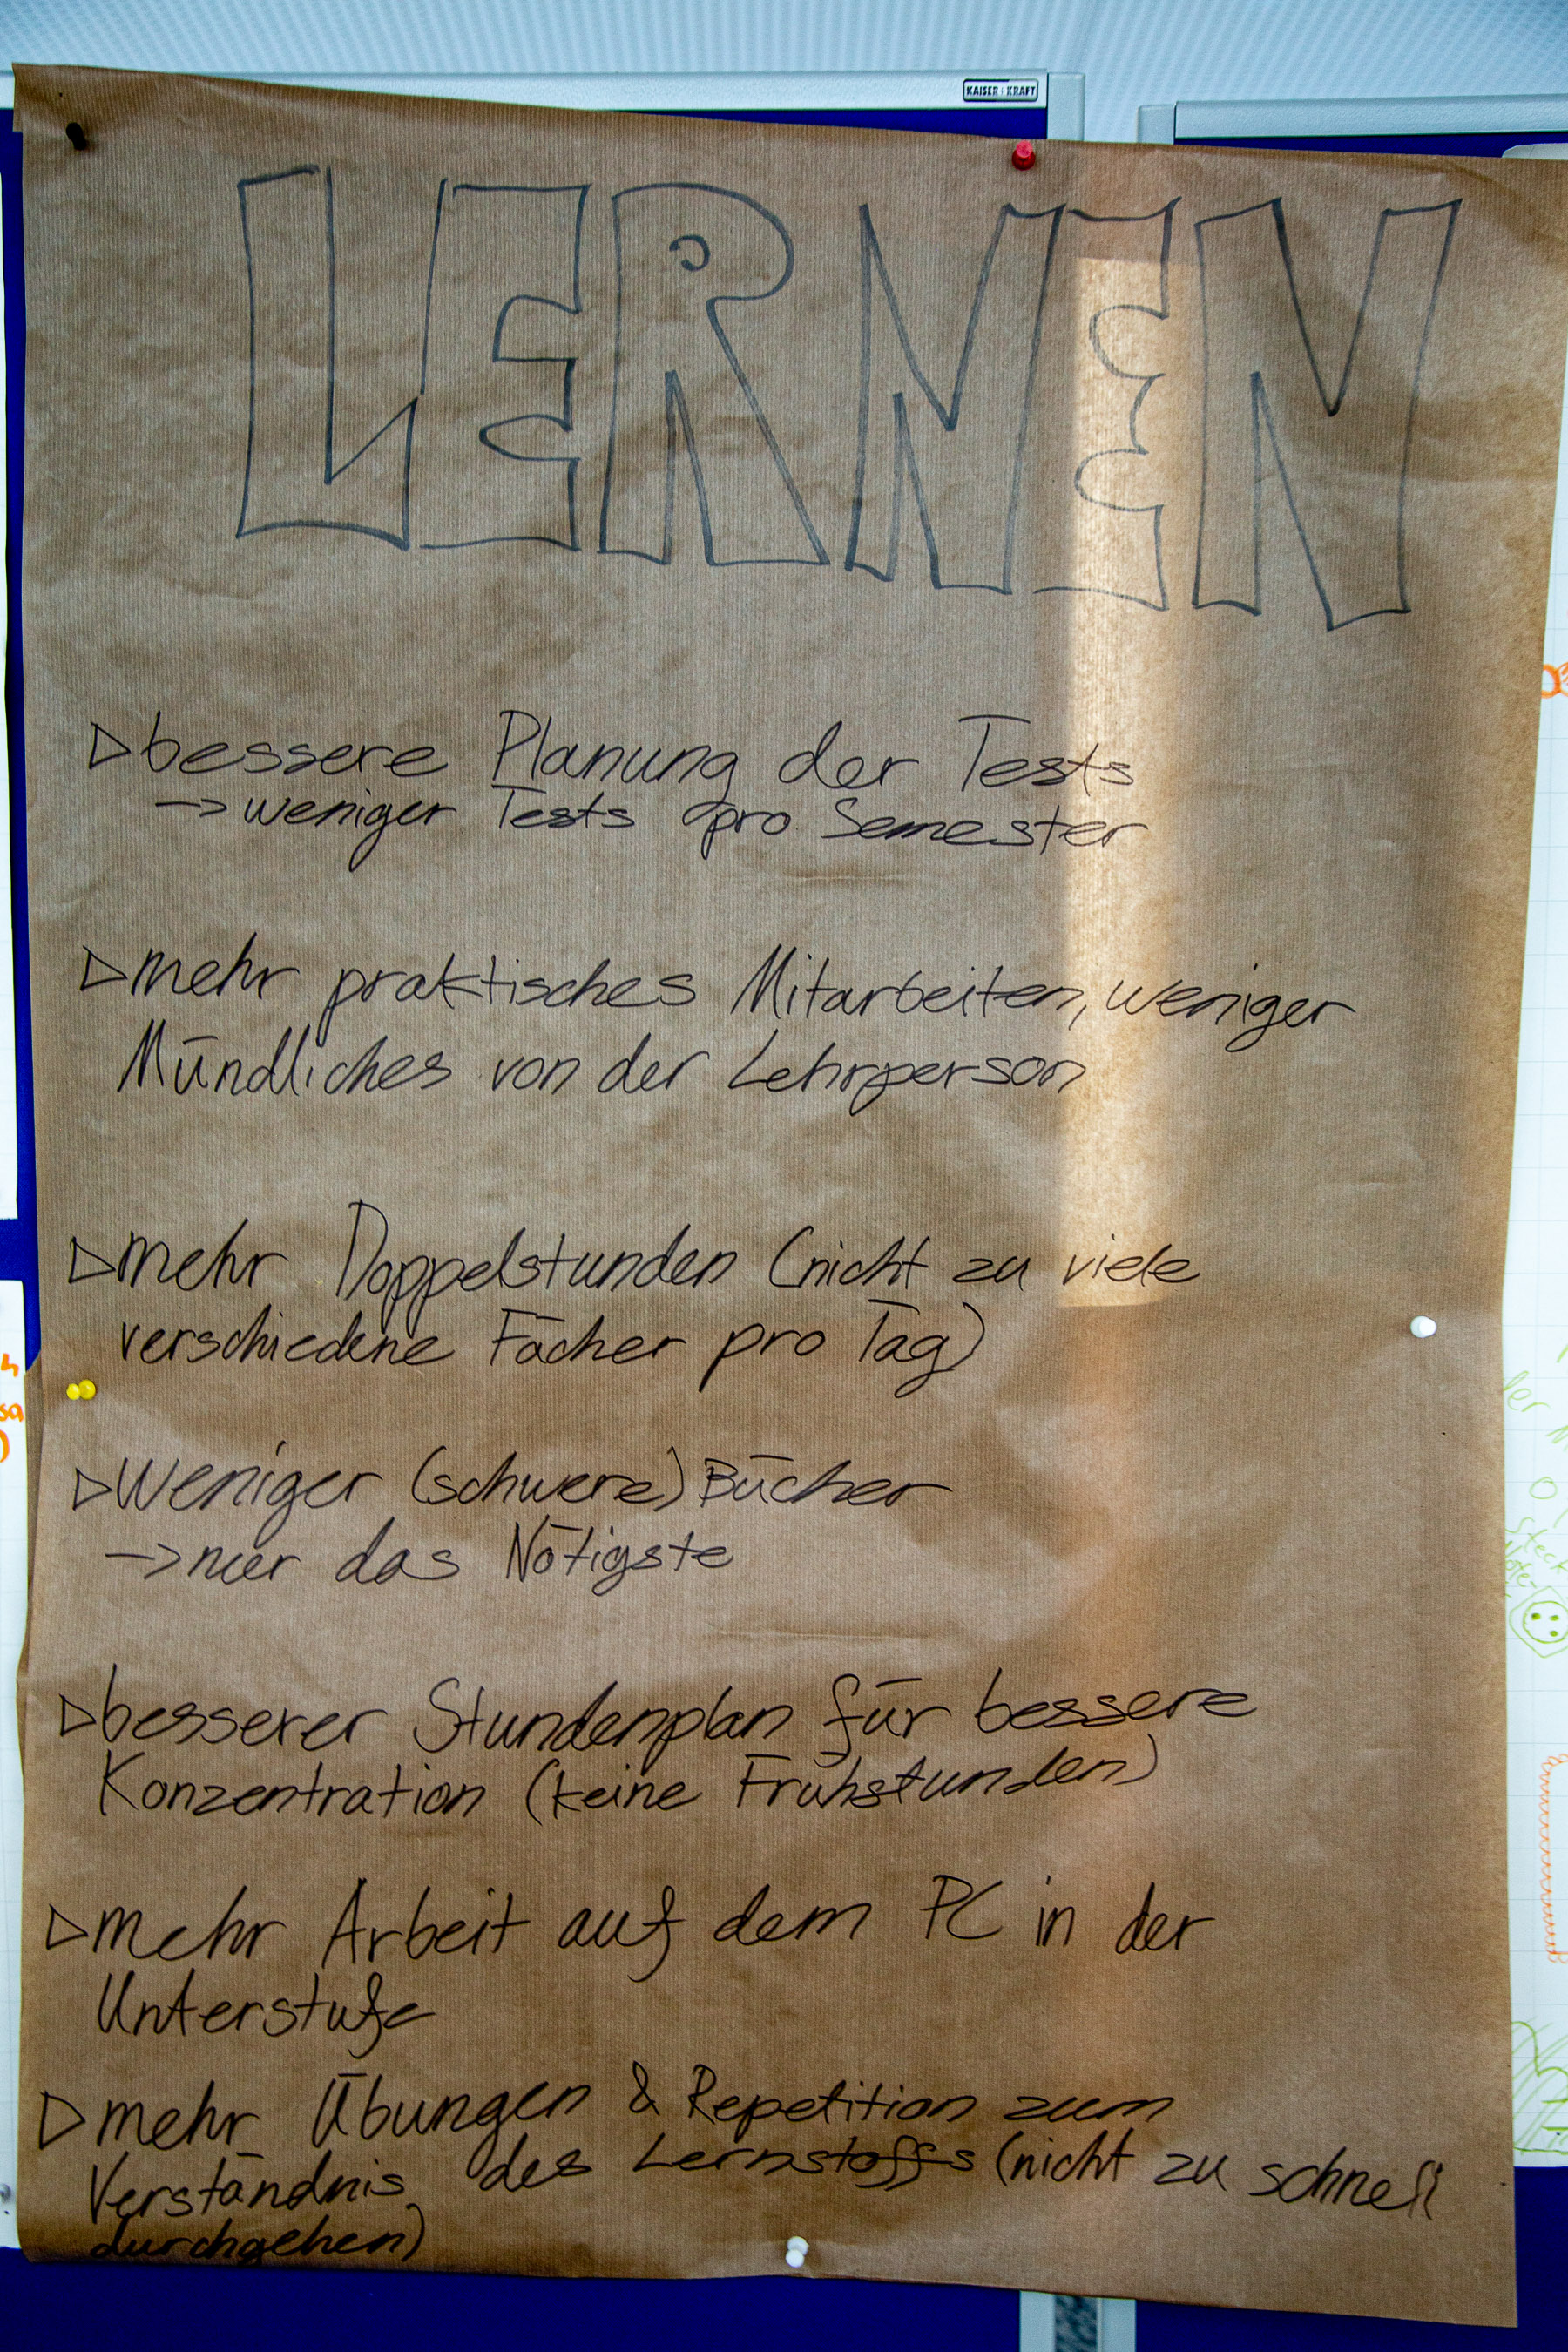 KAISER+KRAFT
LERNEN
▷bessere Planung der Tests
→weniger Tests pro Semester
▷mehr praktisches Mitarbeiten, weniger
Mündliches von der Lehrperson
▷mehr Doppelstunden (nicht zu viele
verschiedene Fächer pro Tag)
▷Weniger (schwere) Bücher
→nur das Nötigste
▷besserer Stundenplan für bessere
Konzentration (keine Frühstunden)
▷mehr Arbeit auf dem PC in der
Unterstufe
▷mehr Übungen & Repetition zum
Verständnis des Lernstoffs (nicht zu schnell
durchgehen)